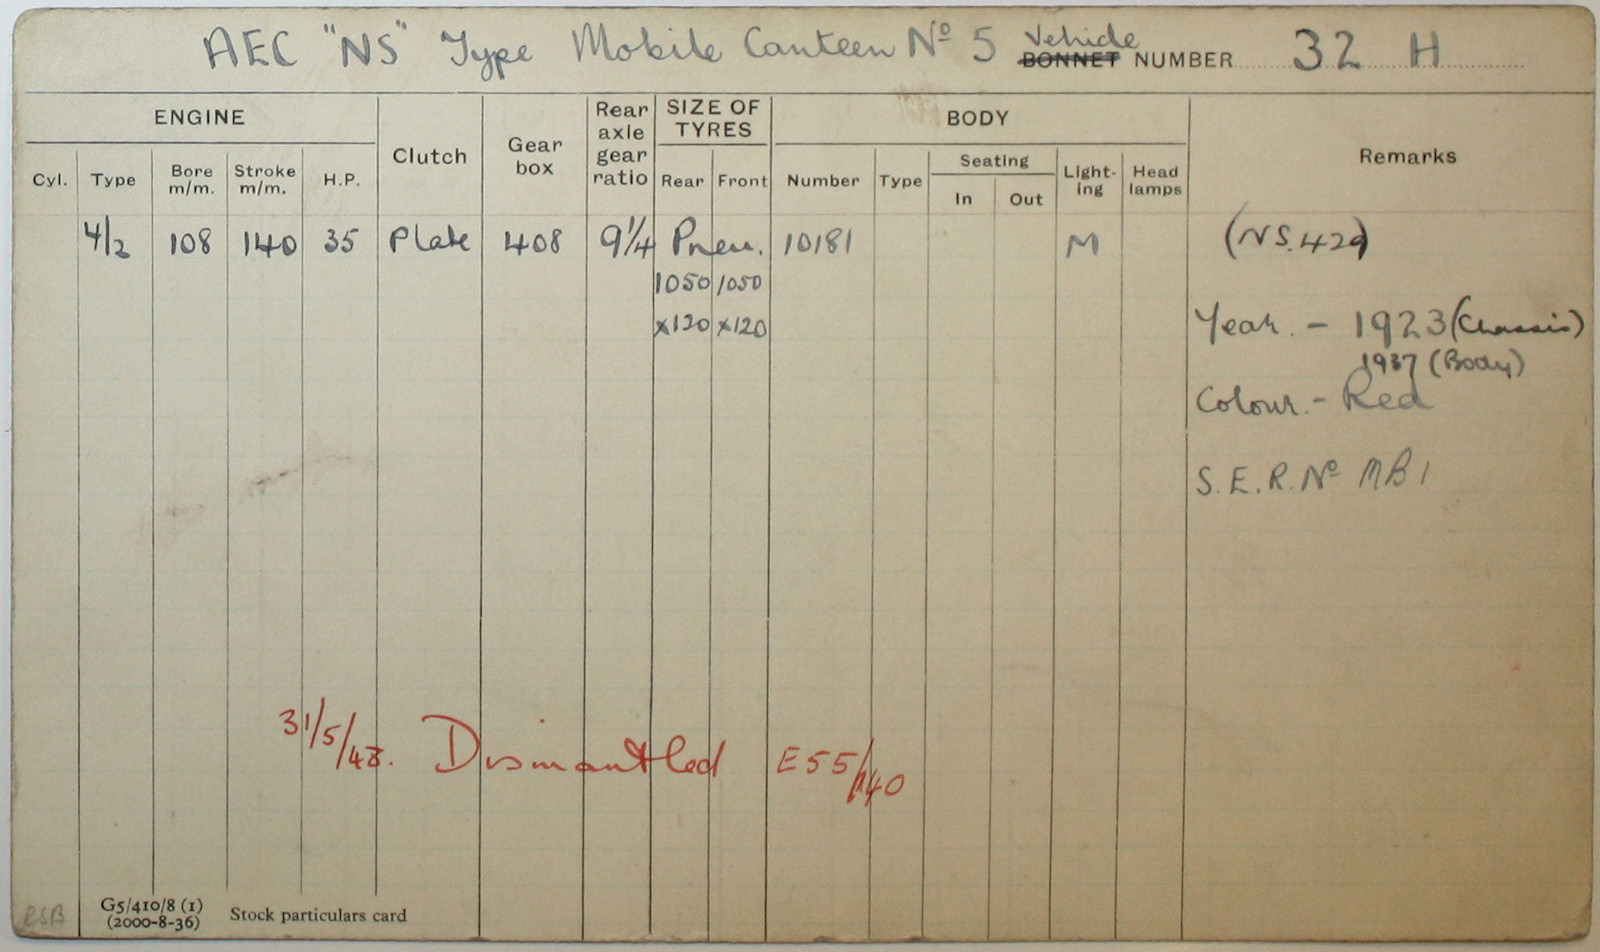 AEC "NS" Type Mobile Canteen Nº 5 Vehicle BONNET NUMBER 32 H
ENGINE
Cyl. Type Bore m/m. Stroke m/m. H.P.
Clutch
Gear box
Rear axle gear ratio
SIZE OF TYRES
Rear Front
BODY
Number Type
Seating
In Out
Light-ing
Head lamps
Remarks
4/2 108 140 35 Plate 408 9¼ Pneu. 10181 M (NS.429)
1050 1050
x120 x120
Year. - 1923 (Chassis)
1937 (Body)
Colour. - Red
S.E.R. Nº MB1
31/5/48. Dismantled E55/140
RSB
G5/410/8 (1)
(2000-8-36)
Stock particulars card